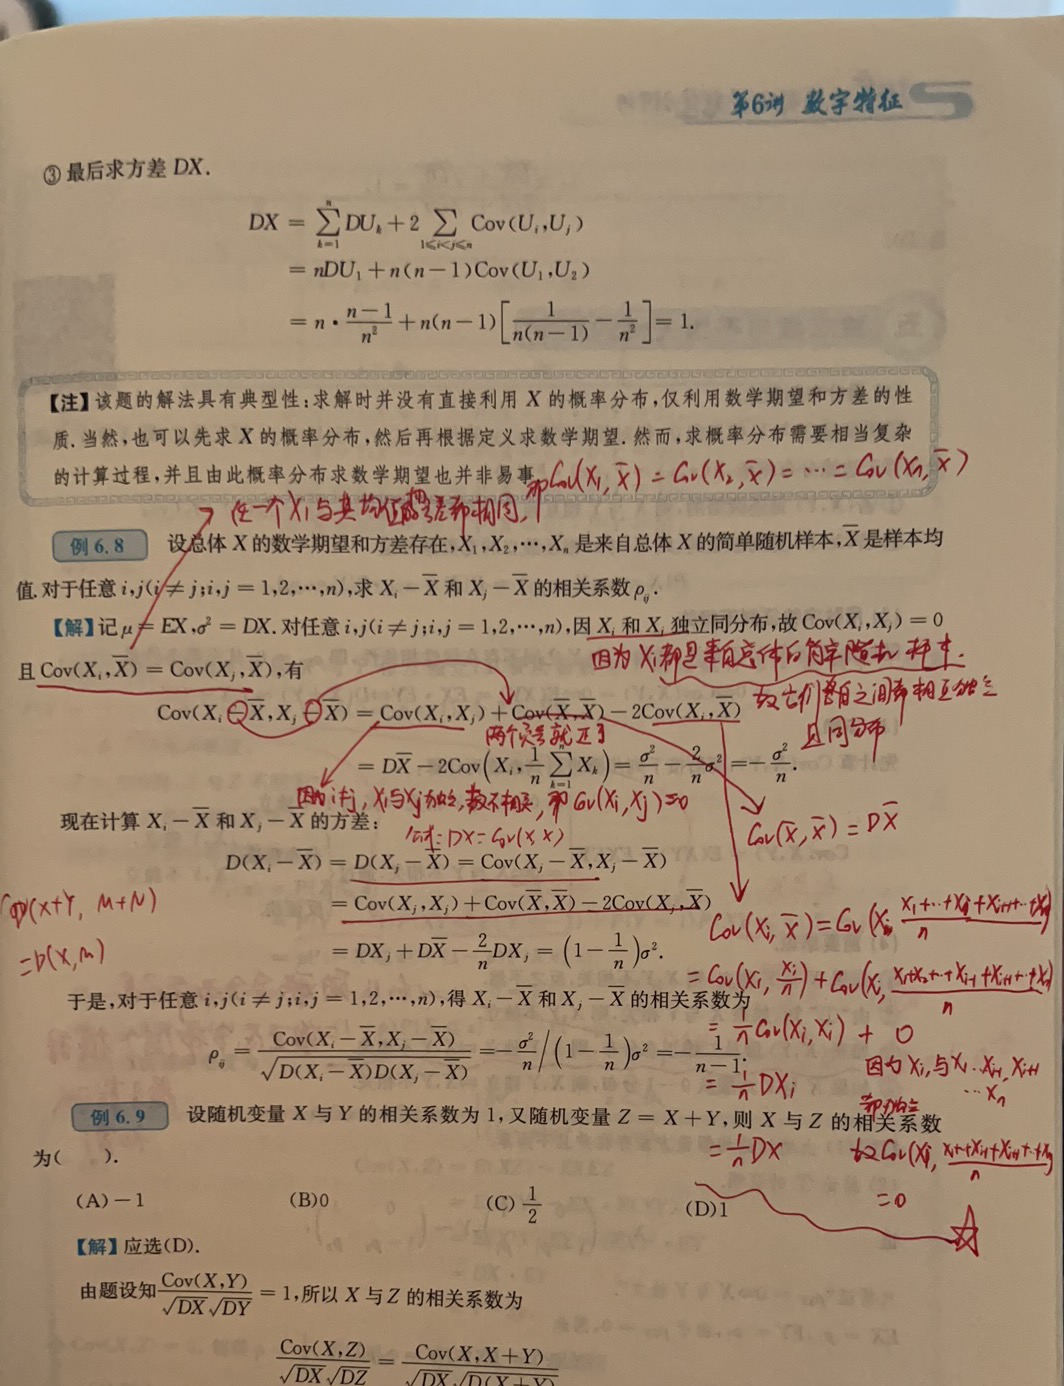 第6讲 数字特征
③ 最后求方差 DX.
DX = \sum_{k=1}^{n} DU_k + 2 \sum_{1≤i<j≤n} Cov(U_i,U_j)
= nDU_1 + n(n-1)Cov(U_1,U_2)
= n·\frac{n-1}{n^2} + n(n-1)[\frac{1}{n(n-1)} - \frac{1}{n^2}] = 1.
【注】该题的解法具有典型性:求解时并没有直接利用 X 的概率分布,仅利用数学期望和方差的性
质.当然,也可以先求 X 的概率分布,然后再根据定义求数学期望.然而,求概率分布需要相当复杂
的计算过程,并且由此概率分布求数学期望也并非易事.
即Cov(X_1,\overline{X}) = Cov(X_2,\overline{X}) = ⋯ = Cov(X_n,\overline{X})
任一个X_i与其均值的协方差都相同,
例 6.8 设总体 X 的数学期望和方差存在,X_1,X_2,⋯,X_n 是来自总体 X 的简单随机样本,\overline{X} 是样本均
值.对于任意 i,j(i≠j;i,j = 1,2,⋯,n),求 X_i-\overline{X} 和 X_j-\overline{X} 的相关系数 ρ_{ij}.
【解】记 μ = EX,σ^2 = DX.对任意 i,j(i≠j;i,j = 1,2,⋯,n),因 X_i 和 X_j 独立同分布,故 Cov(X_i,X_j) = 0
因为 X_i都是来自总体的简单随机样本.
且 Cov(X_i,\overline{X}) = Cov(X_j,\overline{X}),有
故它们各自之间都相互独立
且同分布
Cov(X_i-\overline{X},X_j-\overline{X}) = Cov(X_i,X_j)+Cov(\overline{X},\overline{X})-2Cov(X_i,\overline{X})
两个负号就正了
= D\overline{X}-2Cov(X_i,\frac{1}{n}\sum_{k=1}^{n}X_k) = \frac{σ^2}{n}-\frac{2}{n}σ^2 = -\frac{σ^2}{n}.
因为i≠j, X_i与X_j独立,故不相关,即 Cov(X_i,X_j)=0
现在计算 X_i-\overline{X} 和 X_j-\overline{X} 的方差:
公式:DX=Cov(X,X)
Cov(\overline{X},\overline{X}) = D\overline{X}
D(X_i-\overline{X}) = D(X_j-\overline{X}) = Cov(X_j-\overline{X},X_j-\overline{X})
= Cov(X_j,X_j)+Cov(\overline{X},\overline{X})-2Cov(X_j,\overline{X})
= DX_j+D\overline{X}-\frac{2}{n}DX_j = (1-\frac{1}{n})σ^2.
D(X+Y, M+N)
=D(X,M)
于是,对于任意 i,j(i≠j;i,j = 1,2,⋯,n),得 X_i-\overline{X} 和 X_j-\overline{X} 的相关系数为
ρ_{ij} = \frac{Cov(X_i-\overline{X},X_j-\overline{X})}{\sqrt{D(X_i-\overline{X})D(X_j-\overline{X})}} = -\frac{σ^2}{n}/(1-\frac{1}{n})σ^2 = -\frac{1}{n-1}.
Cov(X_i,\overline{X})=Cov(X_i,
= \frac{1}{n}Cov(X_i,X_i) + 0
= \frac{1}{n}DX_i
= \frac{1}{n}DX
因为 X_i,与
都独立
=0
例 6.9 设随机变量 X 与 Y 的相关系数为 1,又随机变量 Z = X+Y,则 X 与 Z 的相关系数
为( ).
(A)-1 (B)0 (C)\frac{1}{2} (D)1
【解】应选(D).
由题设知\frac{Cov(X,Y)}{\sqrt{DX}\sqrt{DY}} = 1,所以 X 与 Z 的相关系数为
\frac{Cov(X,Z)}{\sqrt{DX}\sqrt{DZ}} = \frac{Cov(X,X+Y)}{\sqrt{DX}\sqrt{D(X+Y)}}